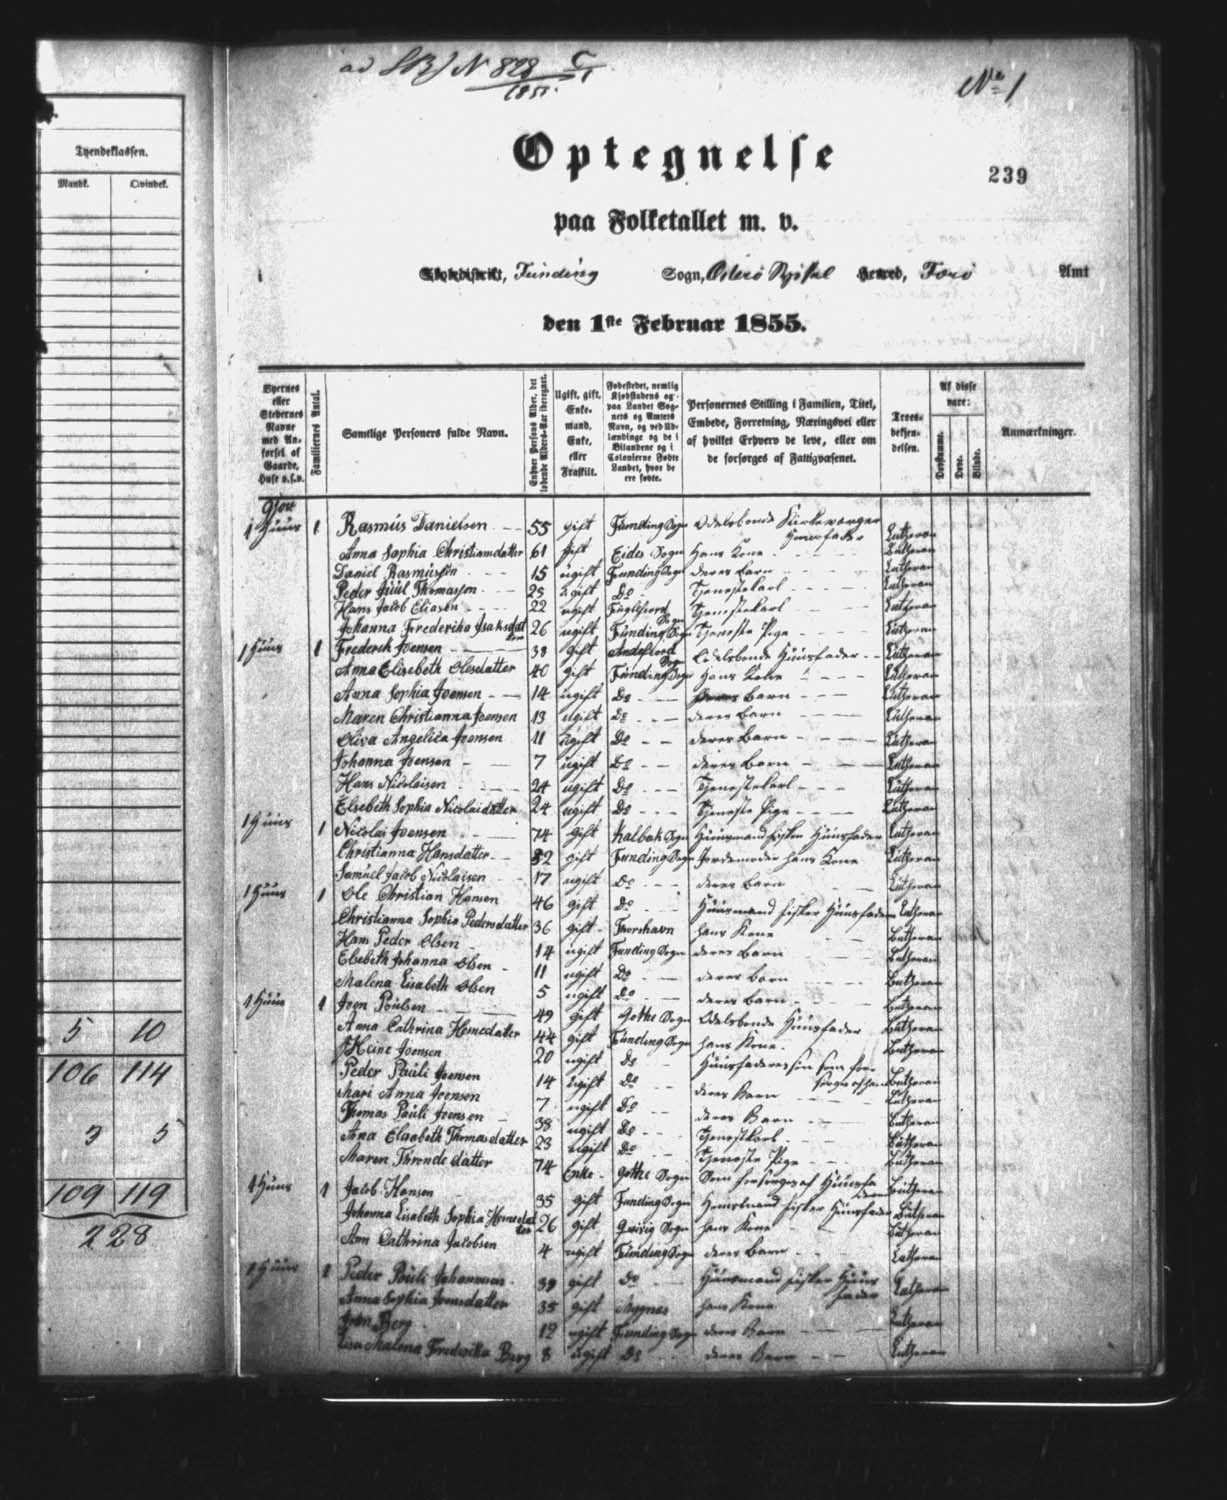 Tyendeklassen.
Mandk. Qvindek.
5 10
106 114
3 5
109 119
228
ad N 828
1851.
No 1
Optegnelse
239
paa Folketallet m. v.
Funding Sogn, Österö Sysel Herred, Færö Amt
den 1ste Februar 1855.
Byernes eller Stedernes Navne med Anførsel af Gaarde, Huse o.s.v.
Familiernes Antal.
Samtlige Personers fulde Navn.
Enhver Persons Alder, det løbende Alders-Aar iberegnet.
Ugift, gift, Enkemand, Enke, eller Fraskilt.
Fødestedet, nemlig Kjøbstadens og paa Landet Sognets og Amtets Navn, og ved Udlændinge og de i Bilandene og i Colonierne Fødte Landet, hvor de ere fødte.
Personernes Stilling i Familien, Titel, Embede, Forretning, Næringsvei eller af hvilket Erhverv de leve, eller om de forsørges af Fattigvæsenet.
Troesbekjendelsen.
Af disse vare:
Døvstumme. Døve. Blinde.
Anmærkninger.
Gjov
1 Huus 1 Rasmus Danielsen 55 gift Funding Sogn Odelsbonde Kirkeværger Huusfader Lutheran
Anna Sophia Christiansdatter 61 gift Eides Sogn Hans Kone Lutheran
Daniel Rasmussen 15 ugift Funding Sogn deres Barn Lutheran
Peder Juul Thomassen 25 ugift Do Tjenestekarl Lutheran
Hans Jacob Eliasen 22 ugift Fuglefjord Sogn Tjenestekarl Lutheran
Johanna Frederika Isaksdatter 26 ugift Funding Sogn Tjeneste Pige Lutheran
1 Huus 1 Frederik Joensen 38 gift Andefjord Sogn Odelsbonde Huusfader Lutheran
Anna Elisebeth Olesdatter 40 gift Funding Sogn Hans Kone Lutheran
Anna Sophia Joensen 14 ugift Do deres Barn Lutheran
Maren Christianna Joensen 13 ugift Do deres Barn Lutheran
Oliva Angelica Joensen 11 ugift Do deres Barn Lutheran
Johanna Joensen 7 ugift Do deres Barn Lutheran
Hans Nicolaisen 24 ugift Do Tjenestekarl Lutheran
Elsebeth Sophia Nicolaidatter 24 ugift Do Tjeneste Pige Lutheran
1 Huus 1 Nicolai Joensen 74 gift Kalbak Sogn Huusmand fisker Huusfader Lutheran
Christianna Hansdatter 52 gift Funding Sogn Jordemoder hans Kone Lutheran
Samuel Jacob Nicolaisen 17 ugift Do deres Barn Lutheran
1 Huus 1 Ole Christian Hansen 46 gift Do Huusmand fisker Huusfader Lutheran
Christianna Sophia Pedersdatter 36 gift Thorshavn hans Kone Lutheran
Hans Peder Olsen 14 ugift Funding Sogn deres Barn Lutheran
Elsebeth Johanna Olsen 11 ugift Do deres Barn Lutheran
Malena Lisabeth Olsen 5 ugift Do deres Barn Lutheran
1 Huus 1 Joen Poulsen 49 gift Gothe Sogn Odelsbonde Huusfader Lutheran
Anna Cathrina Heinesdatter 44 gift Funding Sogn hans Kone Lutheran
Heine Joensen 20 ugift Do Huusfaderens søn som Lutheran
Peder Pauli Joensen 14 ugift Do deres Barn Lutheran
Mari Anna Joensen 7 ugift Do deres Barn Lutheran
Thomas Pauli Joensen 38 ugift Do Tjenestkarl Lutheran
Ana Elsebeth Thomasdatter 23 ugift Do Tjeneste Pige Lutheran
Maren Throndedatter 74 Enke Gothe Sogn Som forsørges af Huusfaderen Lutheran
1 Huus 1 Jacob Hansen 35 gift Funding Sogn Huusmand fisker Huusfader Lutheran
Johanna Lisabeth Sophia Heinesdatter 26 gift Qvivig Sogn hans Kone Lutheran
Ann Cathrina Jacobsen 4 ugift Funding Sogn deres Barn Lutheran
1 Huus 1 Peder Pauli Johannesen 39 gift Do Huusmand fisker Huusfader Lutheran
Anna Sophia Joensdatter 35 gift Mygnes hans Kone Lutheran
Joen Berg 12 ugift Funding Sogn deres Barn Lutheran
Lisa Malena Frederikka Berg 8 ugift Do deres Barn Lutheran